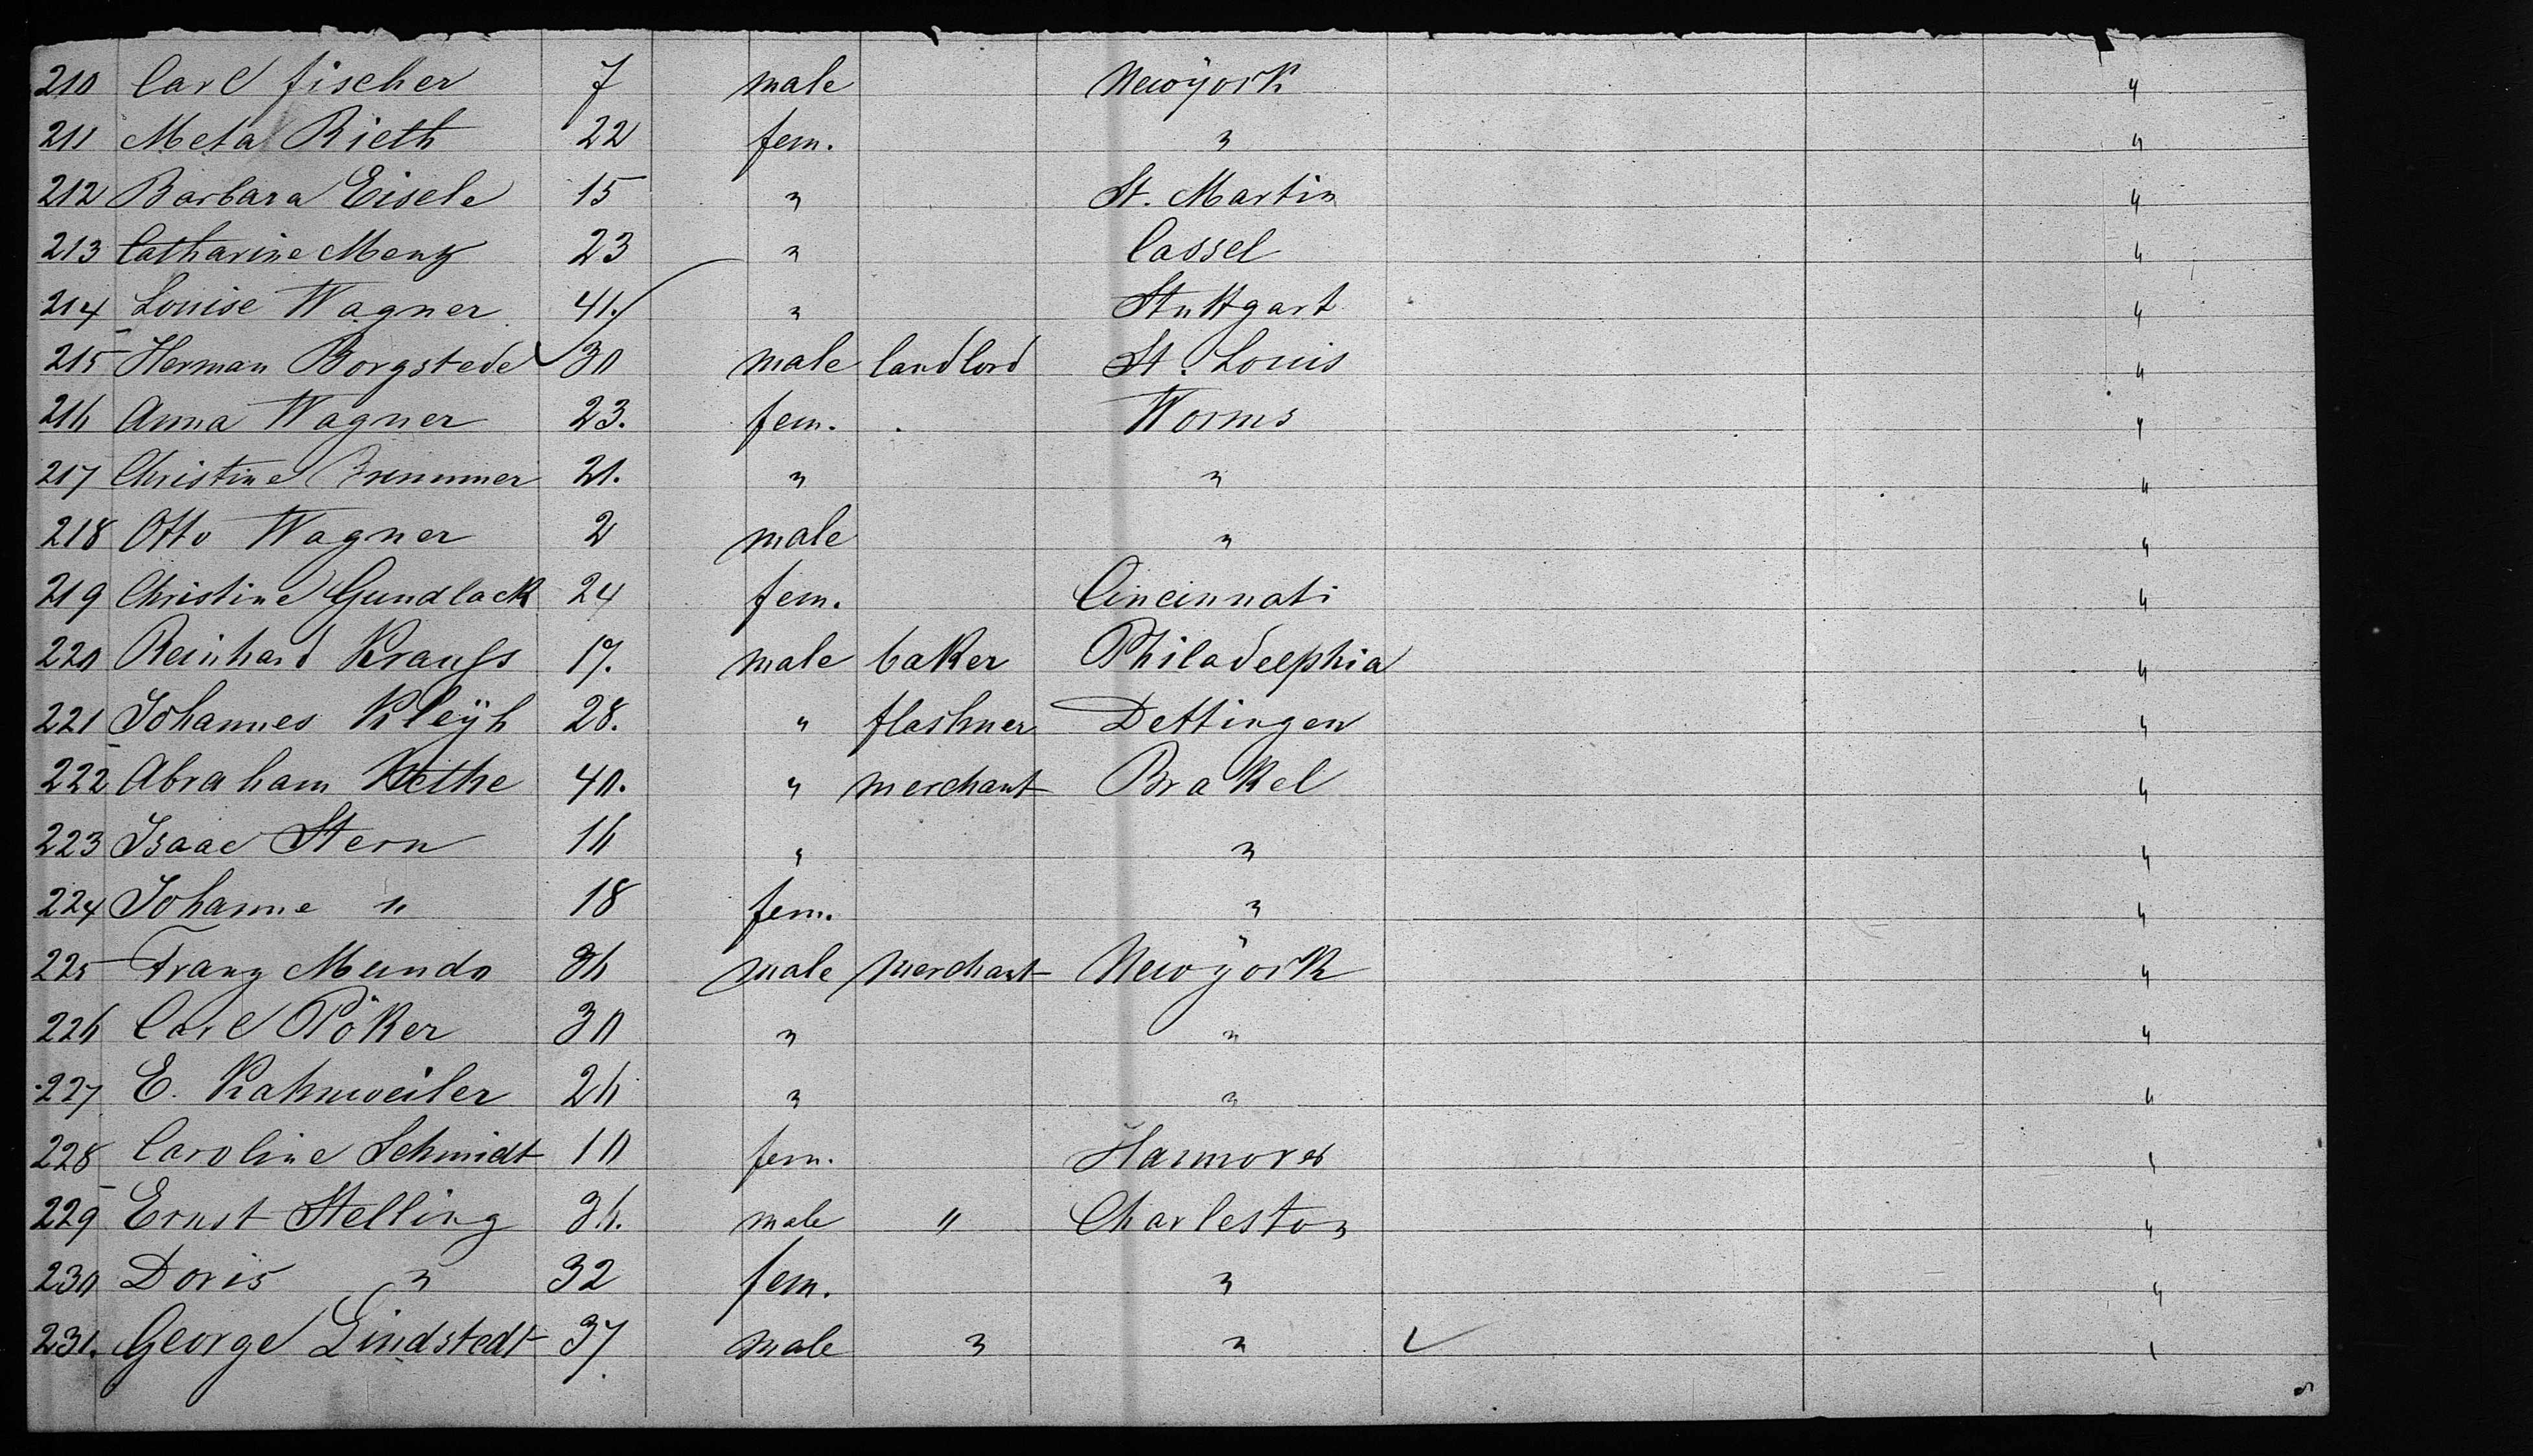 210 Carl Fischer 7 male Newÿork "
211 Meta Rieth 22 fem. " "
212 Barbara Eisele 15 " St. Martin "
213 Catharine Menz 23 " Cassel "
214 Louise Wagner 41. " Stuttgart "
215 Herman Borgstede 30 male landlord St. Louis "
216 Anna Wagner 23. fem. Worms "
217 Christine 21. " " "
218 Otto Wagner 2 male " "
219 Christine Gundlack 24 fem. Cincinnati "
220 Reinhard Krauss 17. male baker Philadelphia "
221 Johannes Kleÿh 28. " flashner Dettingen "
222 Abraham 40. " merchant Brakel "
223 Isaac Stern 16 " " "
224 Johanne " 18 fem. " "
225 Franz Mundo 36 male merchant Newÿork "
226 Carl Pöker 30 " " "
227 E. Kahnweiler 26 " " "
228 Caroline Schmidt 10 fem. Hannover "
229 Ernst Stelling 36. male " Charleston "
230 Doris " 32 fem. " "
231. George Lindstedt 37. male " " "